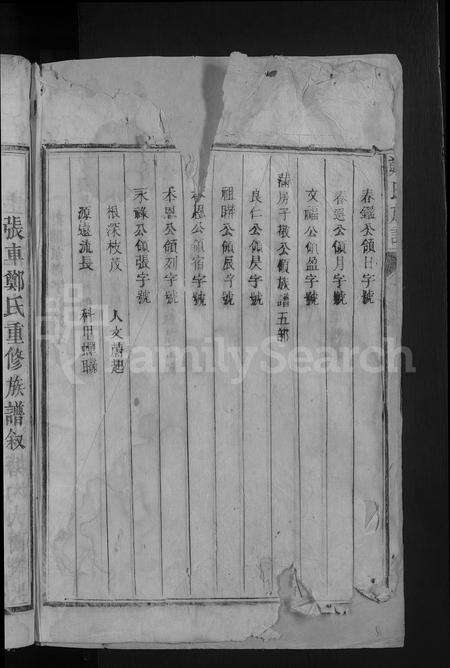 春鑑公領日字號
春選公領月字號
文臨公領盈字號
滿房子敬公領族譜五部
良仁公領昃字號
祖聯公領辰字號
恩公領宿字號
本恩公領列字號
永祿公領張字號
根深枝茂 人文蔚起
源遠流長 科甲蟬聯
張車鄭氏重修族譜叙
FamilySearch